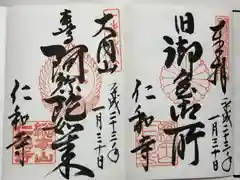 奉拝
平成二十三年
一月三十日
旧御室御所
仁和寺
大内山
平成二十三年
一月三十日
阿弥陀如来
仁和寺
総本山